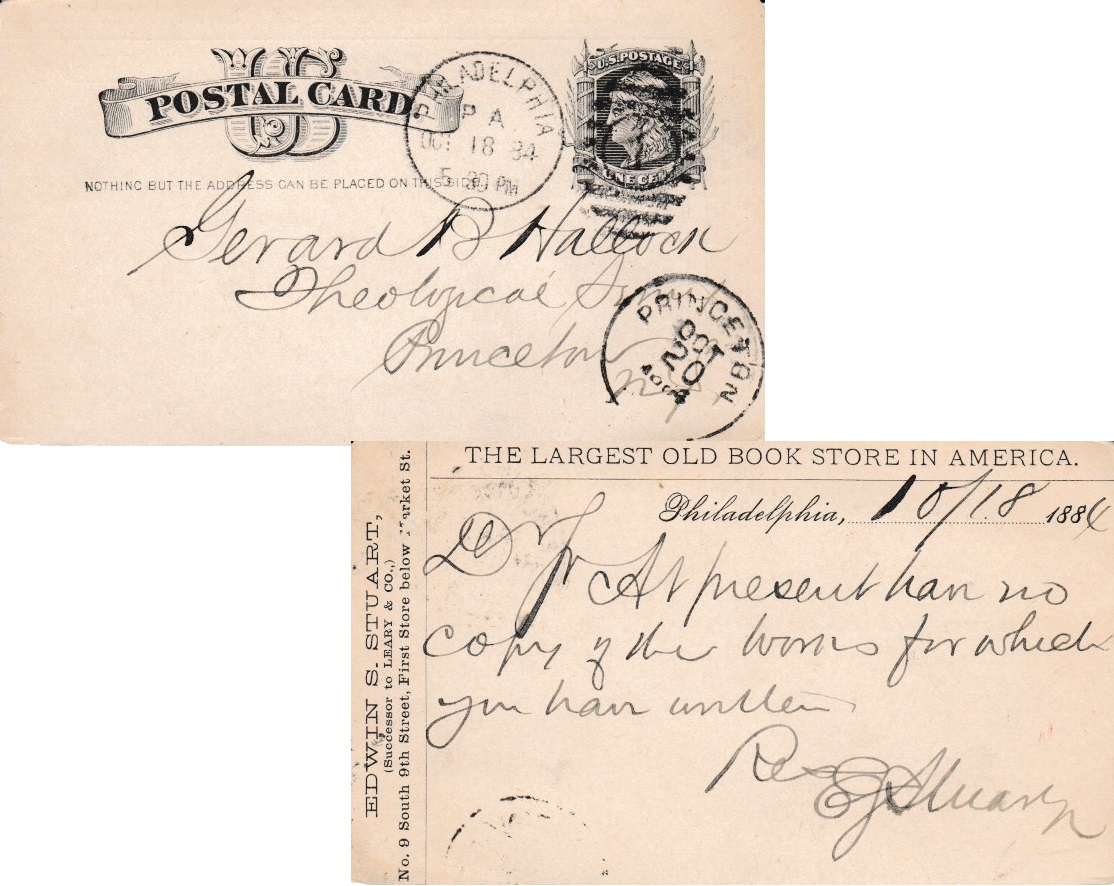 US
POSTAL CARD
NOTHING BUT THE ADDRESS CAN BE PLACED ON THIS SIDE.
U.S. POSTAGE
ONE CENT
PHILADELPHIA
PA
OCT 18 84
5 30 PM
Gerard B Hallock
Theological Sem
Princeton
NJ
PRINCETON
OCT
20
THE LARGEST OLD BOOK STORE IN AMERICA.
Philadelphia, 10/18 1884
EDWIN S. STUART,
(Successor to LEARY & CO.,)
No. 9 South 9th Street, First Store below Market St.
D Sr At present have no
copy of the works for which
you have written
Res
E S Stuart